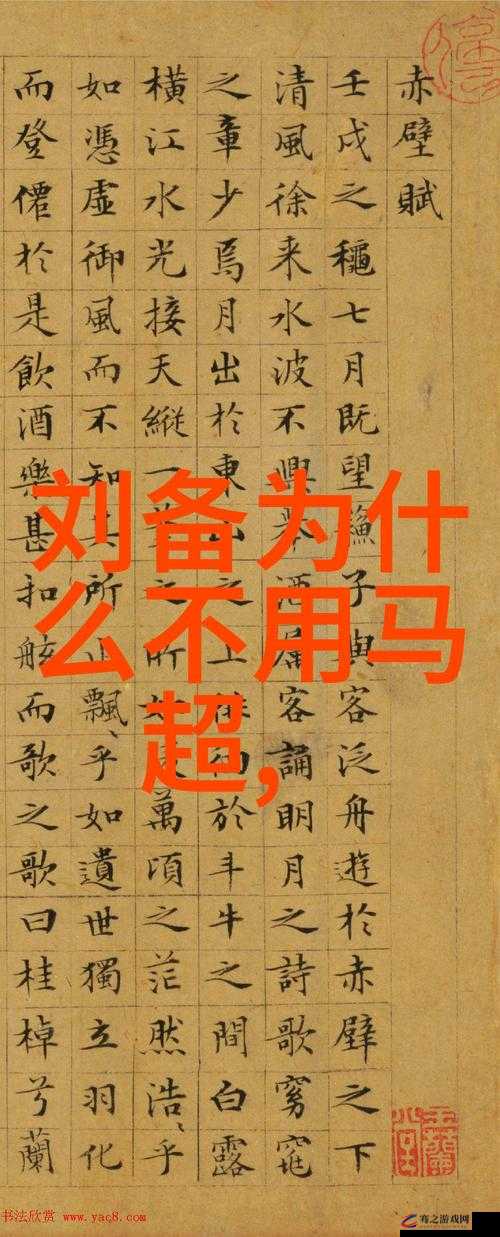 赤壁賦
壬戌之穐七月既望蘓子與客泛舟遊於赤壁之下
清風徐来水波不興舉酒屬客誦明月之詩歌窈窕
之章少焉月出於東山之上徘徊於斗牛之間白露
橫江水光接天縱一葦之所如凌萬頃之茫然浩乎
如憑虛御風而不知其所止飄乎如遺世獨立羽化
而登僊於是飲酒樂甚扣舷而歌之歌曰桂棹兮蘭
刘备为什
么不用马
超,
书法欣赏 www.yac8.com
骞之游戏网